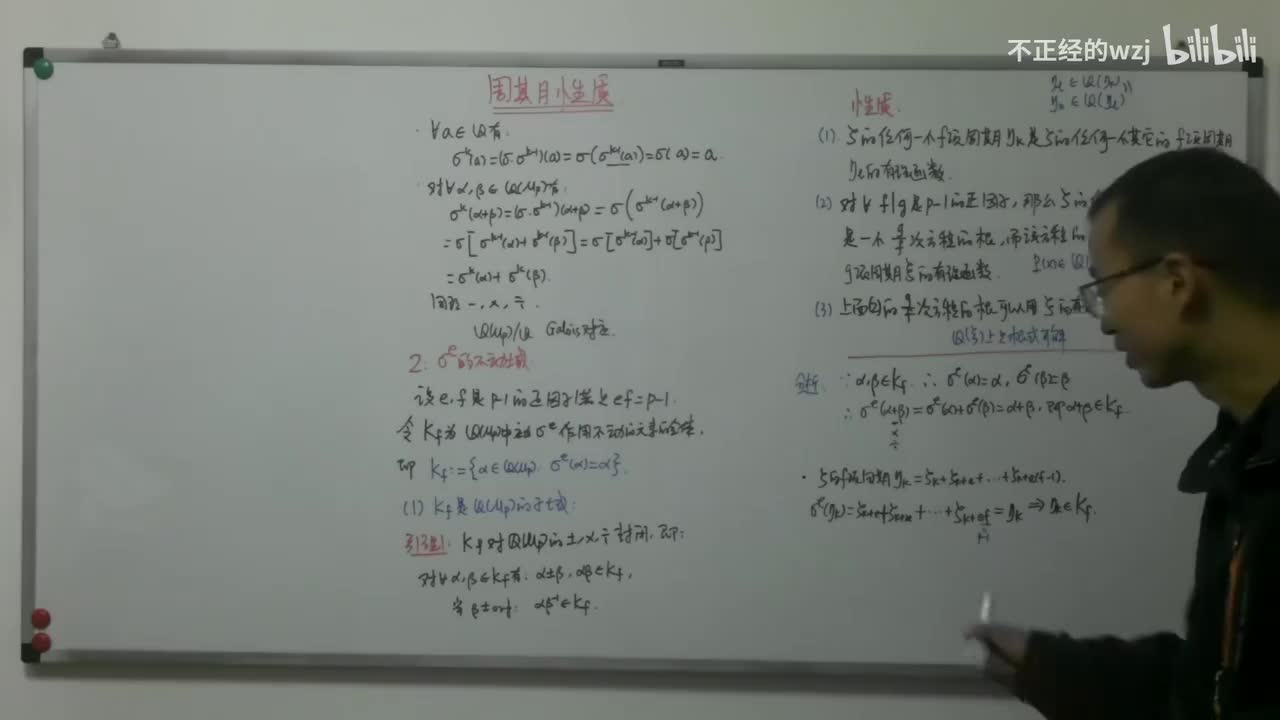 不正经的wzj bilibili
周期的性质
∀a∈Q有.
σᵏ(a)=(σ·σᵏ⁻¹)(a)=σ(σᵏ⁻¹(a))=σ(a)=a.
对∀α,β∈Q(μp)有.
σᵏ(α+β)=(σ·σᵏ⁻¹)(α+β)=σ(σᵏ⁻¹(α+β))
=σ[σᵏ⁻¹(α)+σᵏ⁻¹(β)]=σ[σᵏ⁻¹(α)]+σ[σᵏ⁻¹(β)]
=σᵏ(α)+σᵏ(β).
同理 -,×,÷.
Q(μp)/Q Galois对应.
2. σᵉ的不动域
设e,f是p-1的正因子满足ef=p-1.
令Kf为Q(μp)中在σᵉ作用不动的元素的全体,
即 Kf:={α∈Q(μp). σᵉ(α)=α}.
(1) Kf是Q(μp)的子域:
引理1: Kf对Q(μp)的±,×,÷封闭.即:
对∀α,β∈Kf有. α±β,αβ∈Kf,
当β≠0时: αβ⁻¹∈Kf.
性质.
ηℓ∈Q(ηk)
ηk∈Q(ηℓ)
(1). ζ的任何一个f项周期ηk是ζ的任何一个其它的f项周期
ηℓ的有理函数.
(2) 对∀f|g是p-1的正因子,那么ζ的
是一个g/f次方程的根,而该方程的
g项周期ζ的有理函数. P(x)∈Q(
(3) 上面的g/f次方程的根可以用ζ的
Q(ξ)上之根式可解
分析: ∵α,β∈Kf. ∴σᵉ(α)=α, σᵉ(β)=β
∴σᵉ(α+β)=σᵉ(α)+σᵉ(β)=α+β, 即α+β∈Kf.
-
×
÷
· ζ的f项周期ηk=ζk+ζk+e+⋯+ζk+e(f-1).
σᵉ(ηk)=ζk+e+ζk+2e+⋯+ζk+ef=ηk⇒ηk∈Kf.
p-1